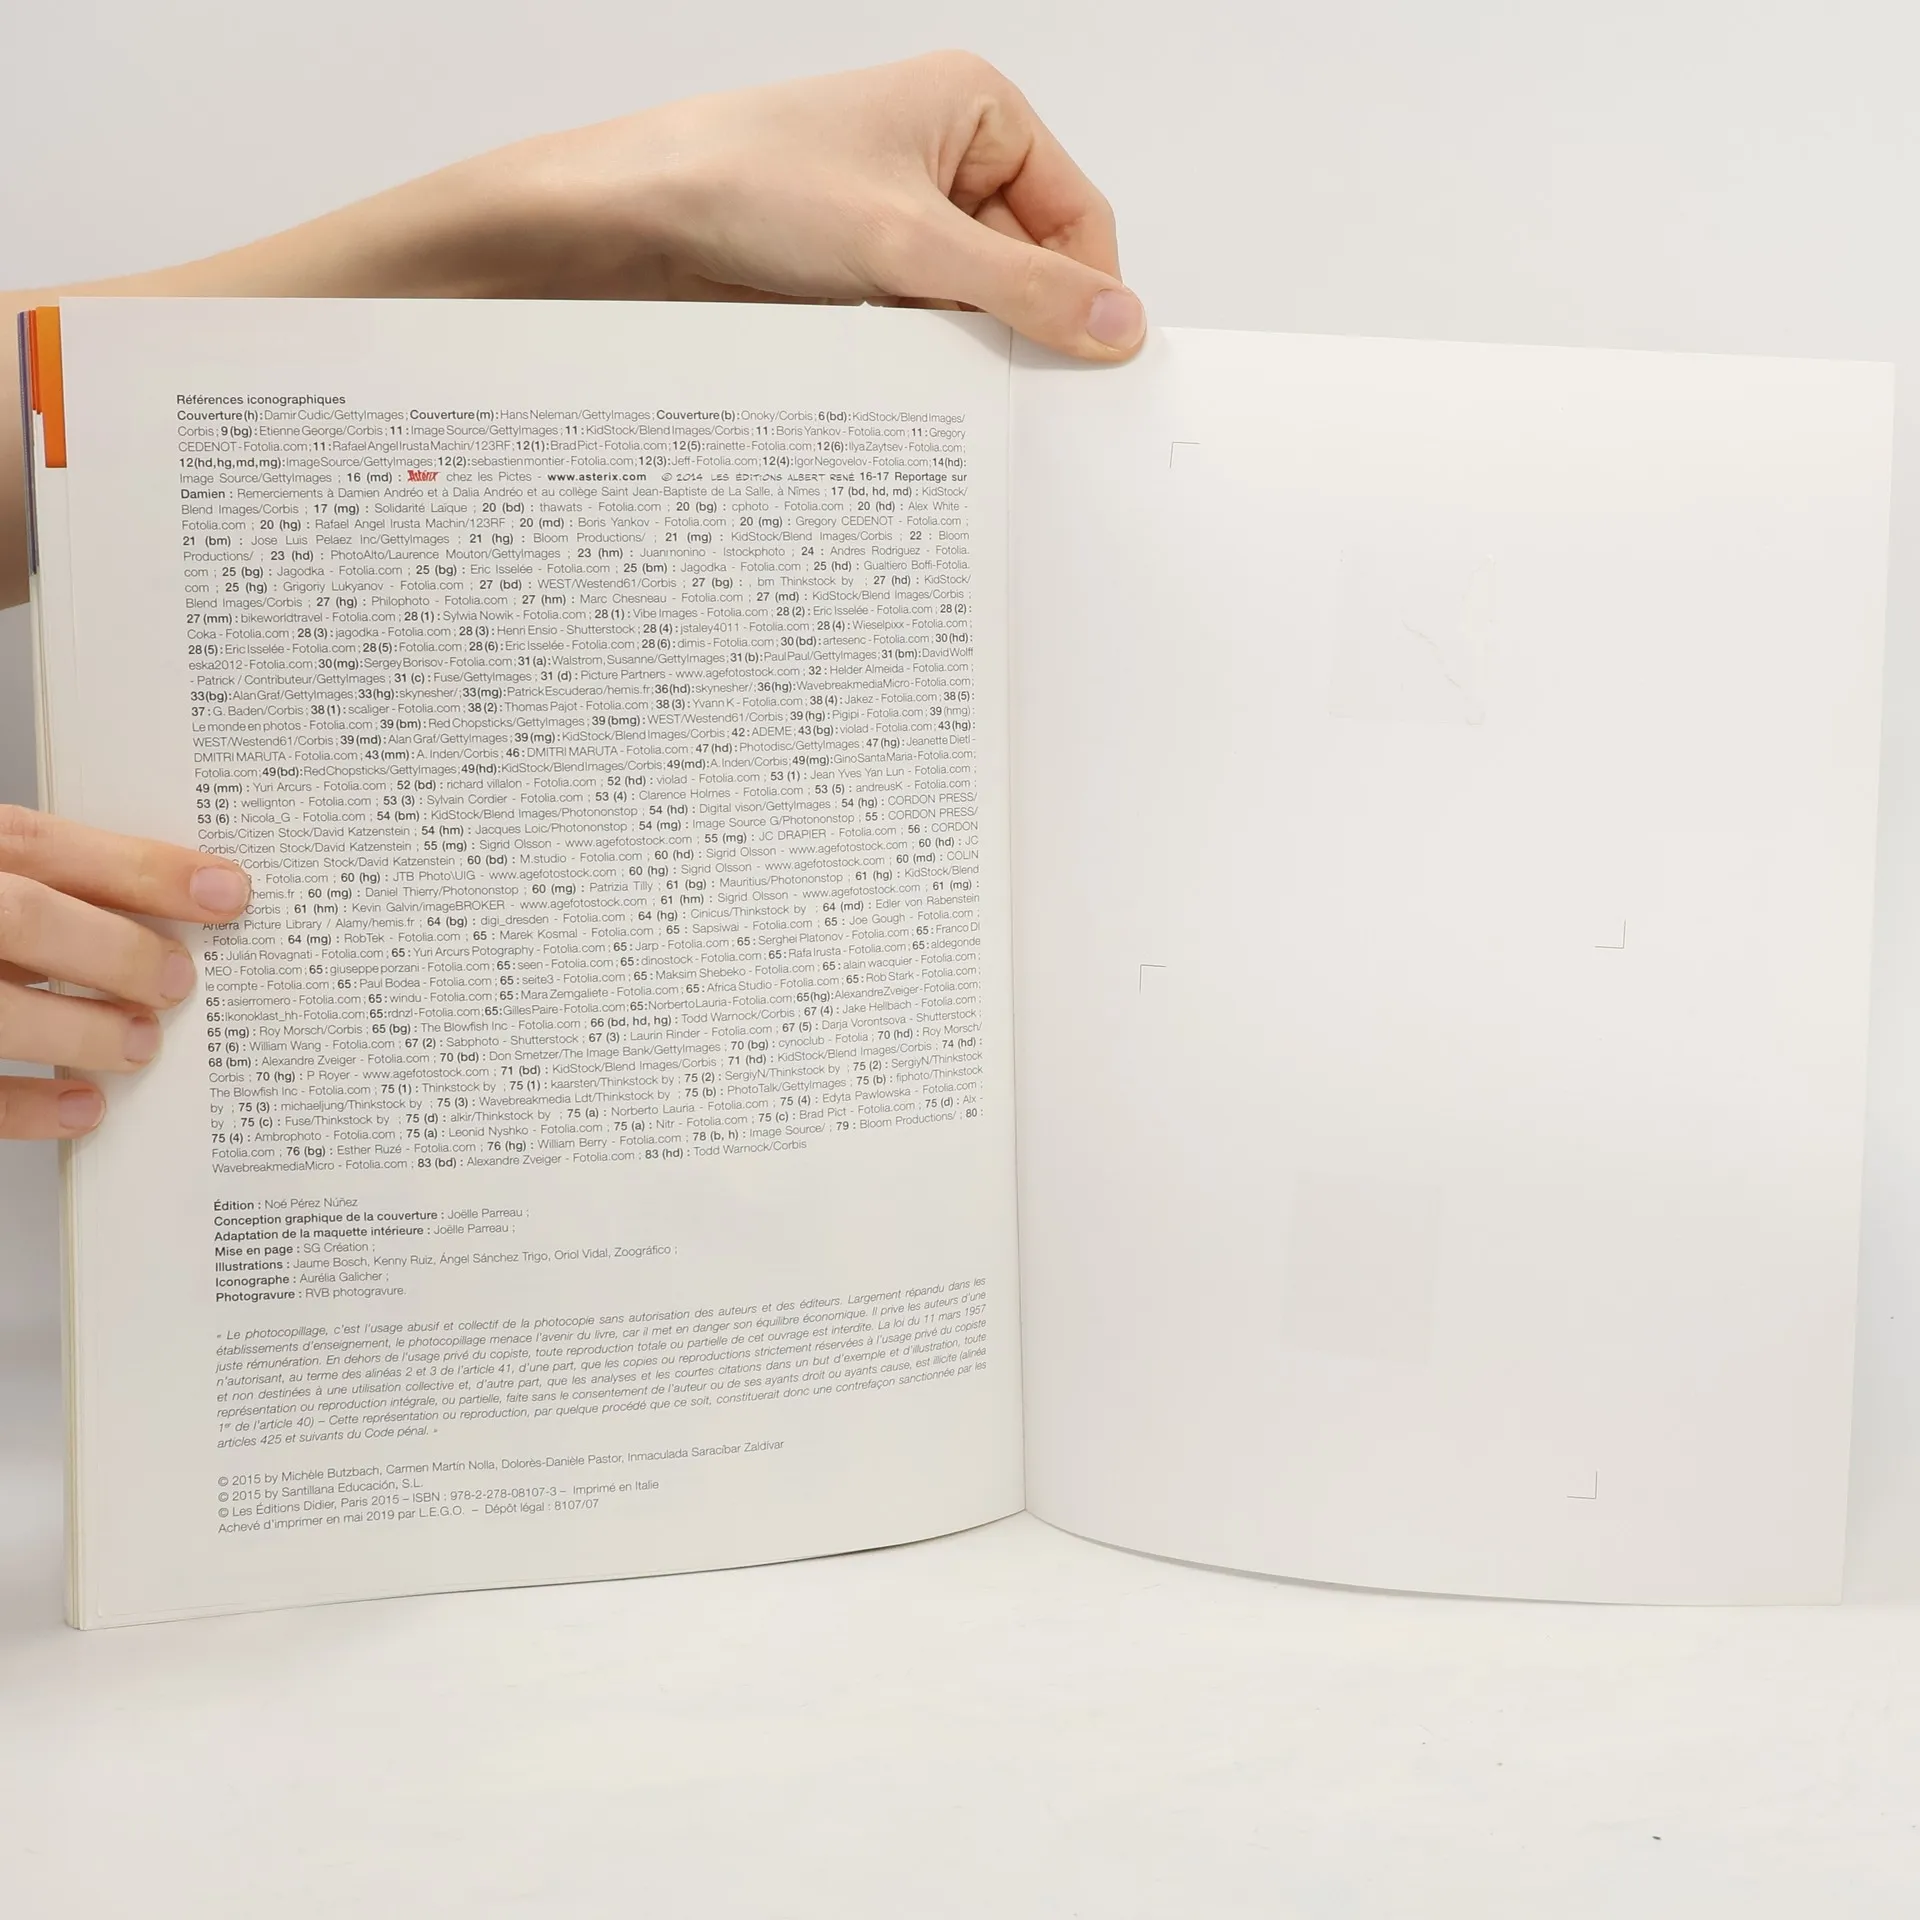 Références iconographiques
Couverture (h) : Damir Cudic/GettyImages ; Couverture (m) : Hans Neleman/GettyImages ; Couverture (b) : Onoky/Corbis ; 6 (bd) : KidStock/Blend Images/
Corbis ; 9 (bg) : Etienne George/Corbis ; 11 : Image Source/GettyImages ; 11 : KidStock/Blend Images/Corbis ; 11 : Boris Yankov - Fotolia.com ; 11 : Gregory
CEDENOT - Fotolia.com ; 11 : Rafael Angel Irusta Machin/123RF ; 12 (1) : Brad Pict - Fotolia.com ; 12 (5) : rainette - Fotolia.com ; 12 (6) : Ilya Zaytsev - Fotolia.com ;
12 (hd, hg, md, mg) : Image Source/GettyImages ; 12 (2) : sebastien montier - Fotolia.com ; 12 (3) : Jeff - Fotolia.com ; 12 (4) : Igor Negovelov - Fotolia.com ; 14 (hd) :
Image Source/GettyImages ; 16 (md) : Astérix chez les Pictes - www.asterix.com © 2014 LES ÉDITIONS ALBERT RENÉ 16-17 Reportage sur
Damien : Remerciements à Damien Andréo et à Dalia Andréo et au collège Saint Jean-Baptiste de La Salle, à Nîmes ; 17 (bd, hd, md) : KidStock/
Blend Images/Corbis ; 17 (mg) : Solidarité Laïque ; 20 (bd) : thawats - Fotolia.com ; 20 (bg) : cphoto - Fotolia.com ; 20 (hd) : Alex White -
Fotolia.com ; 20 (hg) : Rafael Angel Irusta Machin/123RF ; 20 (md) : Boris Yankov - Fotolia.com ; 20 (mg) : Gregory CEDENOT - Fotolia.com ;
21 (bm) : Jose Luis Pelaez Inc/GettyImages ; 21 (hg) : Bloom Productions/ ; 21 (mg) : KidStock/Blend Images/Corbis ; 22 : Bloom
Productions/ ; 23 (hd) : PhotoAlto/Laurence Mouton/GettyImages ; 23 (hm) : Juanmonino - Istockphoto ; 24 : Andres Rodriguez - Fotolia.
com ; 25 (bg) : Jagodka - Fotolia.com ; 25 (bg) : Eric Isselée - Fotolia.com ; 25 (bm) : Jagodka - Fotolia.com ; 25 (hd) : Gualtiero Boffi-Fotolia.
com ; 25 (hg) : Grigoriy Lukyanov - Fotolia.com ; 27 (bd) : WEST/Westend61/Corbis ; 27 (bg) : , bm Thinkstock by ; 27 (hd) : KidStock/
Blend Images/Corbis ; 27 (hg) : Philophoto - Fotolia.com ; 27 (hm) : Marc Chesneau - Fotolia.com ; 27 (md) : KidStock/Blend Images/Corbis ;
27 (mm) : bikeworldtravel - Fotolia.com ; 28 (1) : Sylwia Nowik - Fotolia.com ; 28 (1) : Vibe Images - Fotolia.com ; 28 (2) : Eric Isselée - Fotolia.com ; 28 (2) :
Coka - Fotolia.com ; 28 (3) : jagodka - Fotolia.com ; 28 (3) : Henri Ensio - Shutterstock ; 28 (4) : jstaley4011 - Fotolia.com ; 28 (4) : Wieselpixx - Fotolia.com ;
28 (5) : Eric Isselée - Fotolia.com ; 28 (5) : Fotolia.com ; 28 (6) : Eric Isselée - Fotolia.com ; 28 (6) : dimis - Fotolia.com ; 30 (bd) : artesenc - Fotolia.com ; 30 (hd) :
eska2012 - Fotolia.com ; 30 (mg) : Sergey Borisov - Fotolia.com ; 31 (a) : Walstrom, Susanne/GettyImages ; 31 (b) : Paul Paul/GettyImages ; 31 (bm) : David Wolff
- Patrick / Contributeur/GettyImages ; 31 (c) : Fuse/GettyImages ; 31 (d) : Picture Partners - www.agefotostock.com ; 32 : Helder Almeida - Fotolia.com ;
33 (bg) : Alan Graf/GettyImages ; 33 (hg) : skynesher/ ; 33 (mg) : Patrick Escuderao/hemis.fr ; 36 (hd) : skynesher/ ; 36 (hg) : Wavebreakmedia Micro - Fotolia.com ;
37 : G. Baden/Corbis ; 38 (1) : scaliger - Fotolia.com ; 38 (2) : Thomas Pajot - Fotolia.com ; 38 (3) : Yvann K - Fotolia.com ; 38 (4) : Jakez - Fotolia.com ; 38 (5) :
Le monde en photos - Fotolia.com ; 39 (bm) : Red Chopsticks/GettyImages ; 39 (bmg) : WEST/Westend61/Corbis ; 39 (hg) : Pigipi - Fotolia.com ; 39 (hmg) :
WEST/Westend61/Corbis ; 39 (md) : Alan Graf/GettyImages ; 39 (mg) : KidStock/Blend Images/Corbis ; 42 : ADEME ; 43 (bg) : violad - Fotolia.com ; 43 (hg) :
DMITRI MARUTA - Fotolia.com ; 43 (mm) : A. Inden/Corbis ; 46 : DMITRI MARUTA - Fotolia.com ; 47 (hd) : Photodisc/GettyImages ; 47 (hg) : Jeanette Dietl -
Fotolia.com ; 49 (bd) : Red Chopsticks/GettyImages ; 49 (hd) : KidStock/Blend Images/Corbis ; 49 (md) : A. Inden/Corbis ; 49 (mg) : Gino Santa Maria - Fotolia.com ;
49 (mm) : Yuri Arcurs - Fotolia.com ; 52 (bd) : richard villalon - Fotolia.com ; 52 (hd) : violad - Fotolia.com ; 53 (1) : Jean Yves Yan Lun - Fotolia.com ;
53 (2) : wellignton - Fotolia.com ; 53 (3) : Sylvain Cordier - Fotolia.com ; 53 (4) : Clarence Holmes - Fotolia.com ; 53 (5) : andreusK - Fotolia.com ;
53 (6) : Nicola_G - Fotolia.com ; 54 (bm) : KidStock/Blend Images/Photononstop ; 54 (hd) : Digital vison/GettyImages ; 54 (hg) : CORDON PRESS/
Corbis/Citizen Stock/David Katzenstein ; 54 (hm) : Jacques Loic/Photononstop ; 54 (mg) : Image Source G/Photononstop ; 55 : CORDON PRESS/
Corbis/Citizen Stock/David Katzenstein ; 55 (mg) : Sigrid Olsson - www.agefotostock.com ; 55 (mg) : JC DRAPIER - Fotolia.com ; 56 : CORDON
S/Corbis/Citizen Stock/David Katzenstein ; 60 (bd) : M.studio - Fotolia.com ; 60 (hd) : Sigrid Olsson - www.agefotostock.com ; 60 (hd) : JC
- Fotolia.com ; 60 (hg) : JTB Photo\UIG - www.agefotostock.com ; 60 (hg) : Sigrid Olsson - www.agefotostock.com ; 60 (md) : COLIN
/hemis.fr ; 60 (mg) : Daniel Thierry/Photononstop ; 60 (mg) : Patrizia Tilly ; 61 (bg) : Mauritius/Photononstop ; 61 (hg) : KidStock/Blend
Corbis ; 61 (hm) : Kevin Galvin/imageBROKER - www.agefotostock.com ; 61 (hm) : Sigrid Olsson - www.agefotostock.com ; 61 (mg) :
Arterra Picture Library / Alamy/hemis.fr ; 64 (bg) : digi_dresden - Fotolia.com ; 64 (hg) : Cinicus/Thinkstock by ; 64 (md) : Edler von Rabenstein
- Fotolia.com ; 64 (mg) : RobTek - Fotolia.com ; 65 : Marek Kosmal - Fotolia.com ; 65 : Sapsiwai - Fotolia.com ; 65 : Joe Gough - Fotolia.com ;
65 : Julián Rovagnati - Fotolia.com ; 65 : Yuri Arcurs Potography - Fotolia.com ; 65 : Jarp - Fotolia.com ; 65 : Serghei Platonov - Fotolia.com ; 65 : Franco DI
MEO - Fotolia.com ; 65 : giuseppe porzani - Fotolia.com ; 65 : seen - Fotolia.com ; 65 : dinostock - Fotolia.com ; 65 : Rafa Irusta - Fotolia.com ; 65 : aldegonde
le compte - Fotolia.com ; 65 : Paul Bodea - Fotolia.com ; 65 : seite3 - Fotolia.com ; 65 : Maksim Shebeko - Fotolia.com ; 65 : alain wacquier - Fotolia.com ;
65 : asierromero - Fotolia.com ; 65 : windu - Fotolia.com ; 65 : Mara Zemgaliete - Fotolia.com ; 65 : Africa Studio - Fotolia.com ; 65 : Rob Stark - Fotolia.com ;
65 : Ikonoklast_hh - Fotolia.com ; 65 : rdnzl - Fotolia.com ; 65 : Gilles Paire - Fotolia.com ; 65 : Norberto Lauria - Fotolia.com ; 65 (hg) : Alexandre Zveiger - Fotolia.com ;
65 (mg) : Roy Morsch/Corbis ; 65 (bg) : The Blowfish Inc - Fotolia.com ; 66 (bd, hd, hg) : Todd Warnock/Corbis ; 67 (4) : Jake Hellbach - Fotolia.com ;
67 (6) : William Wang - Fotolia.com ; 67 (2) : Sabphoto - Shutterstock ; 67 (3) : Laurin Rinder - Fotolia.com ; 67 (5) : Darja Vorontsova - Shutterstock ;
68 (bm) : Alexandre Zveiger - Fotolia.com ; 70 (bd) : Don Smetzer/The Image Bank/GettyImages ; 70 (bg) : cynoclub - Fotolia ; 70 (hd) : Roy Morsch/
Corbis ; 70 (hg) : P Royer - www.agefotostock.com ; 71 (bd) : KidStock/Blend Images/Corbis ; 71 (hd) : KidStock/Blend Images/Corbis ; 74 (hd) :
The Blowfish Inc - Fotolia.com ; 75 (1) : Thinkstock by ; 75 (1) : kaarsten/Thinkstock by ; 75 (2) : SergiyN/Thinkstock by ; 75 (2) : SergiyN/Thinkstock
by ; 75 (3) : michaeljung/Thinkstock by ; 75 (3) : Wavebreakmedia Ldt/Thinkstock by ; 75 (b) : PhotoTalk/GettyImages ; 75 (b) : fiphoto/Thinkstock
by ; 75 (c) : Fuse/Thinkstock by ; 75 (d) : alkir/Thinkstock by ; 75 (a) : Norberto Lauria - Fotolia.com ; 75 (4) : Edyta Pawlowska - Fotolia.com ;
75 (4) : Ambrophoto - Fotolia.com ; 75 (a) : Leonid Nyshko - Fotolia.com ; 75 (a) : Nitr - Fotolia.com ; 75 (c) : Brad Pict - Fotolia.com ; 75 (d) : Alx -
Fotolia.com ; 76 (bg) : Esther Ruzé - Fotolia.com ; 76 (hg) : William Berry - Fotolia.com ; 78 (b, h) : Image Source/ ; 79 : Bloom Productions/ ; 80 :
WavebreakmediaMicro - Fotolia.com ; 83 (bd) : Alexandre Zveiger - Fotolia.com ; 83 (hd) : Todd Warnock/Corbis
Édition : Noé Pérez Núñez
Conception graphique de la couverture : Joëlle Parreau ;
Adaptation de la maquette intérieure : Joëlle Parreau ;
Mise en page : SG Création ;
Illustrations : Jaume Bosch, Kenny Ruiz, Ángel Sánchez Trigo, Oriol Vidal, Zoográfico ;
Iconographe : Aurélia Galicher ;
Photogravure : RVB photogravure.
« Le photocopillage, c'est l'usage abusif et collectif de la photocopie sans autorisation des auteurs et des éditeurs. Largement répandu dans les
établissements d'enseignement, le photocopillage menace l'avenir du livre, car il met en danger son équilibre économique. Il prive les auteurs d'une
juste rémunération. En dehors de l'usage privé du copiste, toute reproduction totale ou partielle de cet ouvrage est interdite. La loi du 11 mars 1957
n'autorisant, au terme des alinéas 2 et 3 de l'article 41, d'une part, que les copies ou reproductions strictement réservées à l'usage privé du copiste
et non destinées à une utilisation collective et, d'autre part, que les analyses et les courtes citations dans un but d'exemple et d'illustration, toute
représentation ou reproduction intégrale, ou partielle, faite sans le consentement de l'auteur ou de ses ayants droit ou ayants cause, est illicite (alinéa
1er de l'article 40) – Cette représentation ou reproduction, par quelque procédé que ce soit, constituerait donc une contrefaçon sanctionnée par les
articles 425 et suivants du Code pénal. »
© 2015 by Michèle Butzbach, Carmen Martín Nolla, Dolorès-Danièle Pastor, Inmaculada Saracíbar Zaldívar
© 2015 by Santillana Educación, S.L.
© Les Éditions Didier, Paris 2015 – ISBN : 978-2-278-08107-3 – Imprimé en Italie
Achevé d'imprimer en mai 2019 par L.E.G.O. – Dépôt légal : 8107/07